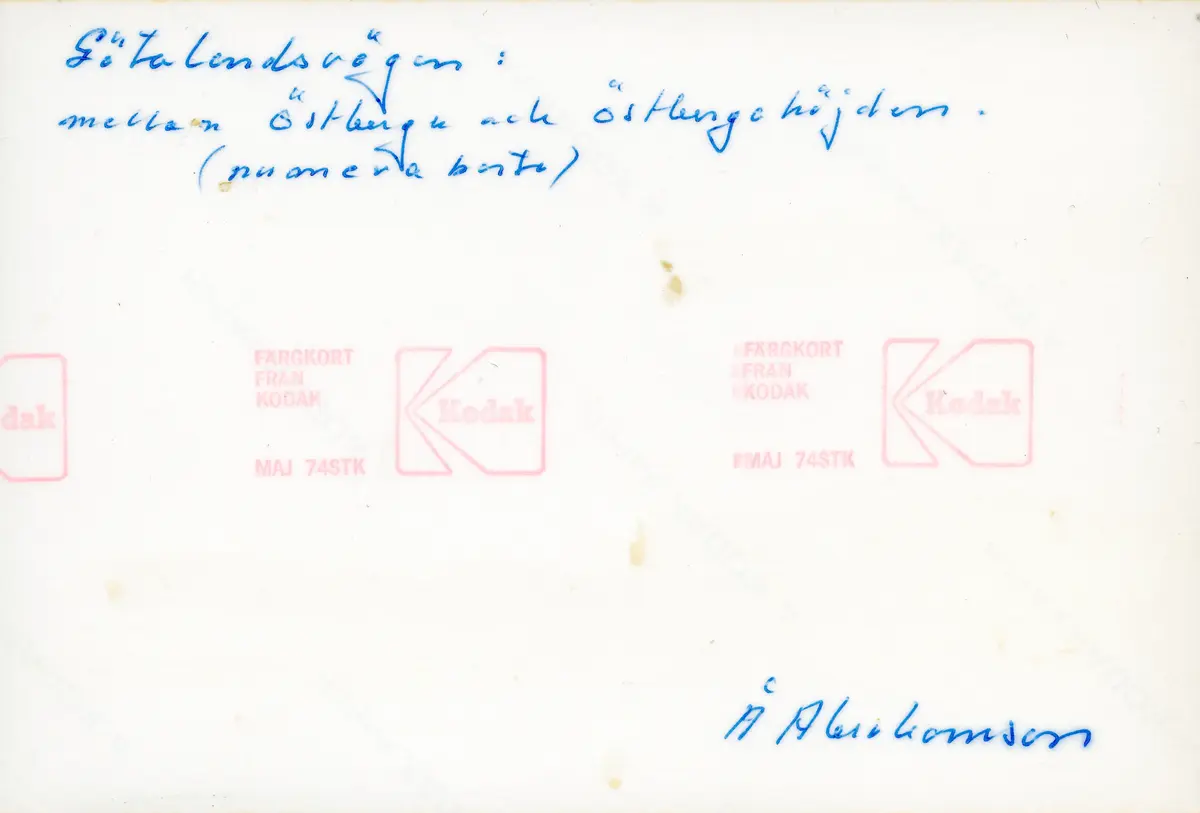 Götalandsvägen:
mellan Östberga och Östbergahöjden.
(numera borta)
dak
FÄRGKORT
FRÅN
KODAK
MAJ 74STK
Kodak
FÄRGKORT
FRÅN
KODAK
MAJ 74STK
Kodak
Å Abrahamson